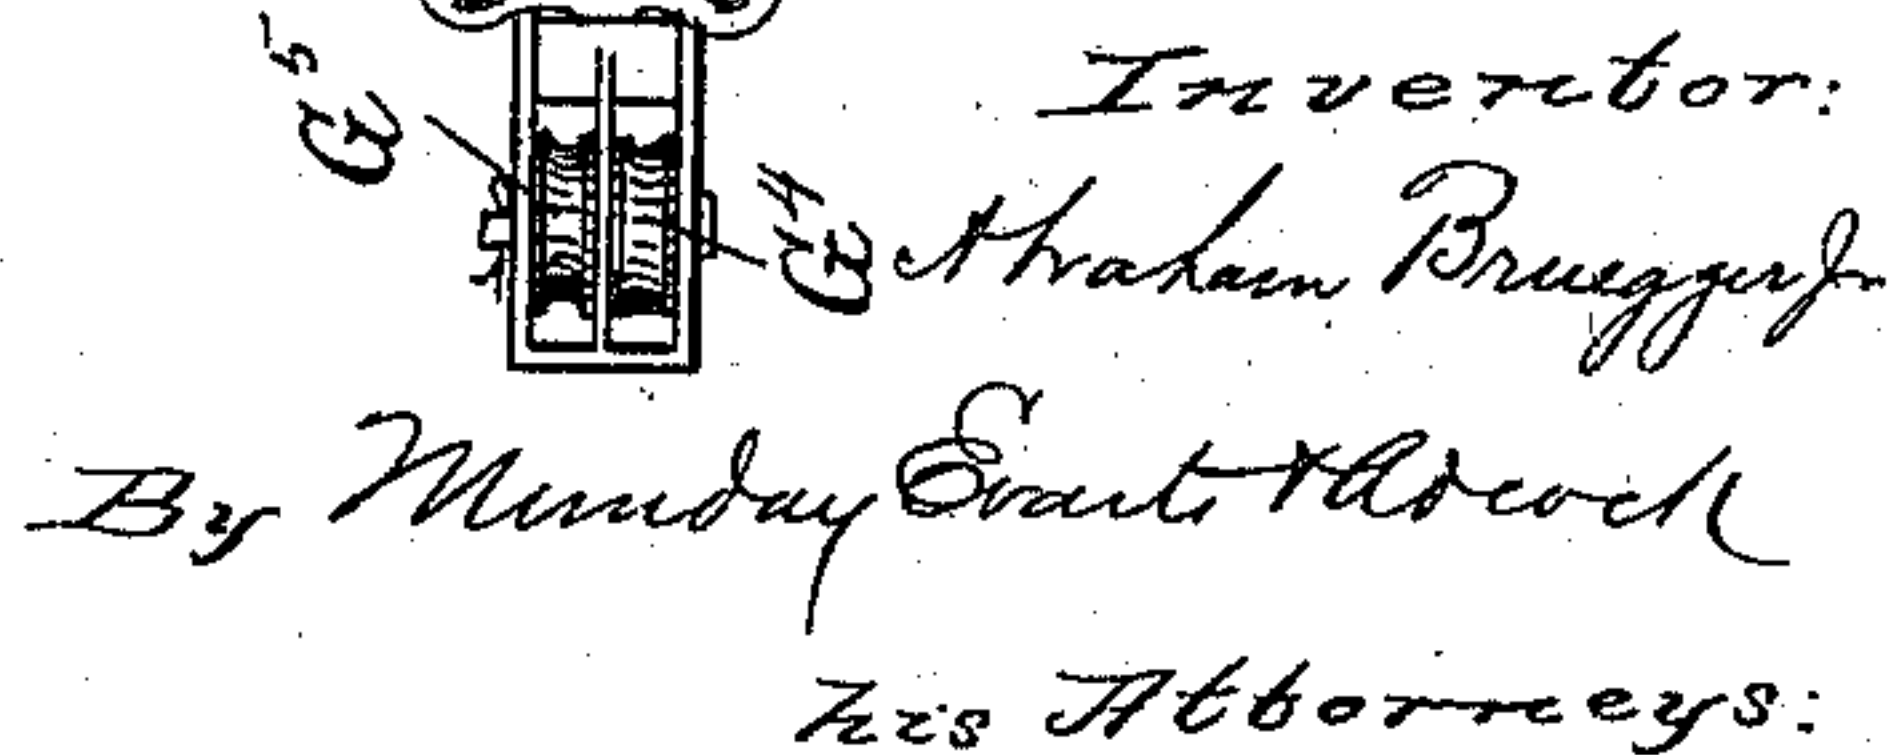 Inventor:
G⁵
G⁴
Abraham Bruegger Jr
By Munday Evarts & Adcock
his Attorneys: